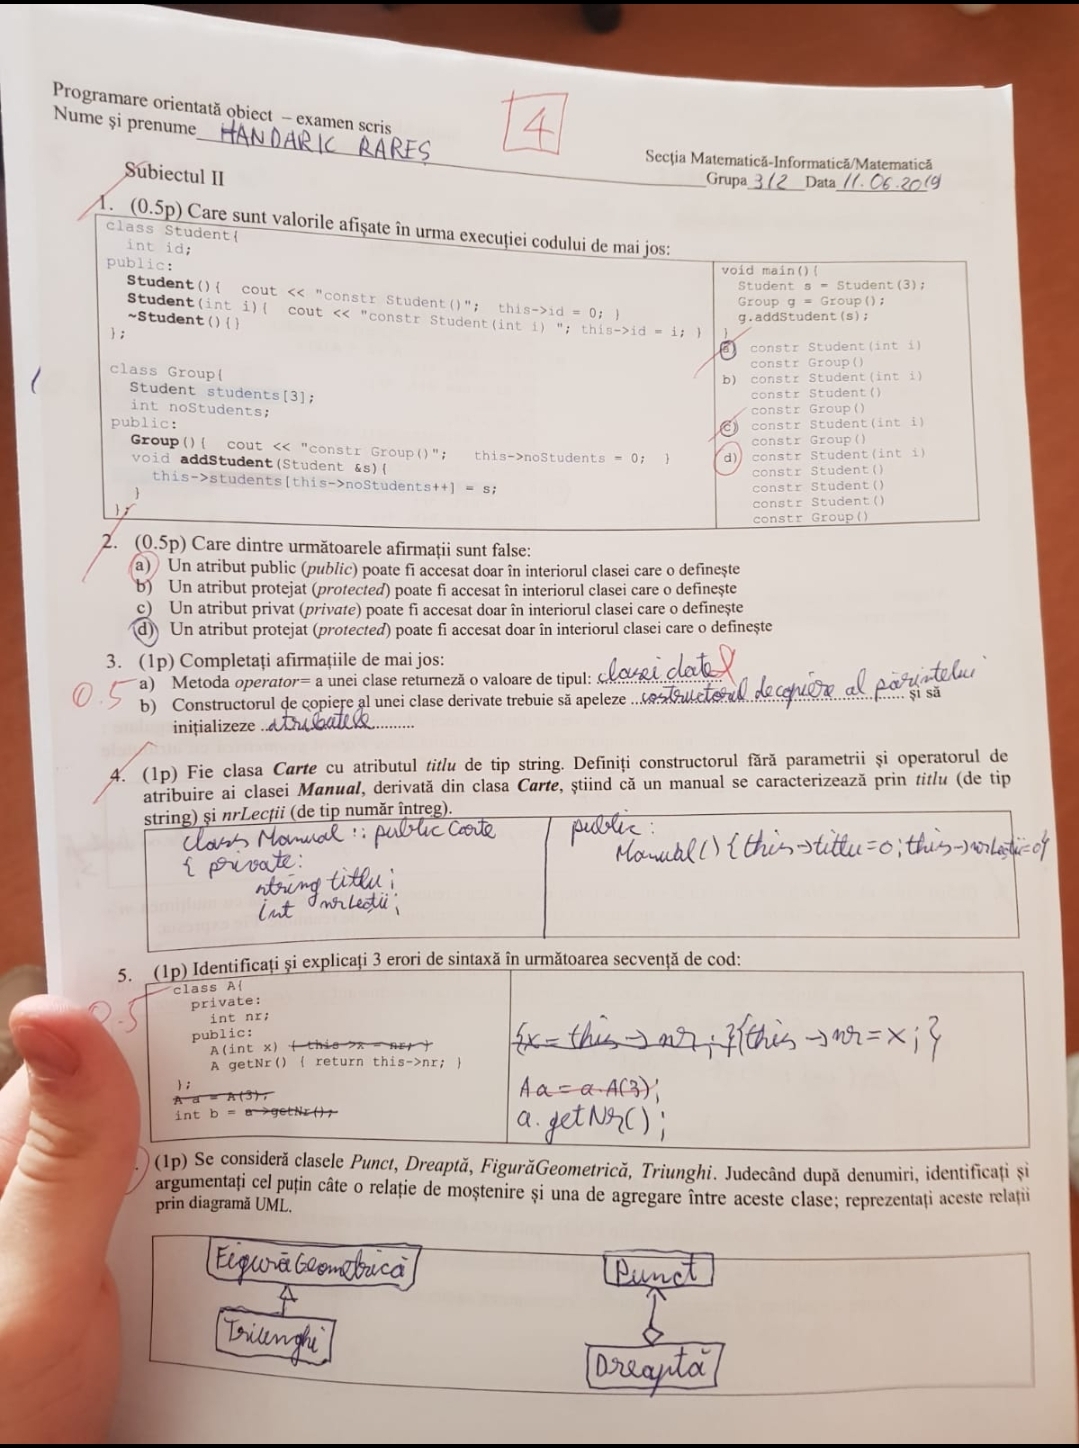 Programare orientată obiect – examen scris
4
Nume și prenume HANDARIC RAREȘ
Secția Matematică-Informatică/Matematică
Grupa 312 Data 11.06.2019
Subiectul II
1. (0.5p) Care sunt valorile afișate în urma execuției codului de mai jos:
class Student{
int id;
public:
Student(){ cout << "constr Student()"; this->id = 0; }
Student(int i){ cout << "constr Student(int i) "; this->id = i; }
~Student(){}
};
class Group{
Student students[3];
int noStudents;
public:
Group(){ cout << "constr Group()"; this->noStudents = 0; }
void addStudent(Student &s){
this->students[this->noStudents++] = s;
}
};
void main(){
Student s = Student(3);
Group g = Group();
g.addStudent(s);
}
a) constr Student(int i)
constr Group()
b) constr Student(int i)
constr Student()
constr Group()
c) constr Student(int i)
constr Group()
d) constr Student(int i)
constr Student()
constr Student()
constr Student()
constr Group()
2. (0.5p) Care dintre următoarele afirmații sunt false:
a) Un atribut public (public) poate fi accesat doar în interiorul clasei care o definește
b) Un atribut protejat (protected) poate fi accesat în interiorul clasei care o definește
c) Un atribut privat (private) poate fi accesat doar în interiorul clasei care o definește
d) Un atribut protejat (protected) poate fi accesat doar în interiorul clasei care o definește
3. (1p) Completați afirmațiile de mai jos:
0.5
a) Metoda operator= a unei clase returneză o valoare de tipul: clasei date
b) Constructorul de copiere al unei clase derivate trebuie să apeleze ..constructorul de copiere al părintelui și să
inițializeze ..atributele..........
4. (1p) Fie clasa Carte cu atributul titlu de tip string. Definiți constructorul fără parametrii și operatorul de
atribuire ai clasei Manual, derivată din clasa Carte, știind că un manual se caracterizează prin titlu (de tip
string) și nrLecții (de tip număr întreg).
class Manual :: public Carte
{ private:
string titlu;
int nrLectii;
public:
Manual() {this->titlu=0; this->nrLectii=0}
5. (1p) Identificați și explicați 3 erori de sintaxă în următoarea secvență de cod:
0.5
class A{
private:
int nr;
public:
A(int x) { this->x = nr; }
A getNr() { return this->nr; }
};
A a = A(3);
int b = a->getNr();
{x = this->nr;}{this->nr=x;}
A a = a.A(3);
a.getNr();
(1p) Se consideră clasele Punct, Dreaptă, FigurăGeometrică, Triunghi. Judecând după denumiri, identificați și
argumentați cel puțin câte o relație de moștenire și una de agregare între aceste clase; reprezentați aceste relații
prin diagramă UML.
FigurăGeometrică
Triunghi
Punct
Dreaptă